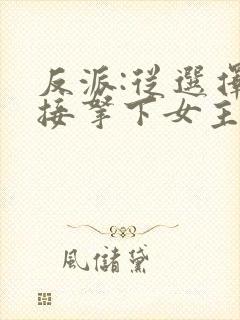 反派:從選擇
接拏下女主
風儲黛